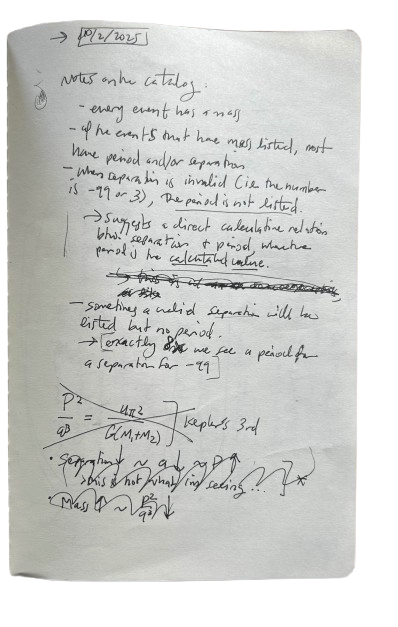 → 10/2/2025
Notes on the catalog:
- every event has a mass
- of the events that have mass listed, most
have period and/or separation
- when separation is invalid (ie the number
is -99 or 3), the period is not listed.
→ suggests a direct calculative relation
btwn separation + period, where the
period is the calculated value.
- sometimes a valid separation will be
listed but no period.
→ exactly we see a period for
a separation for -99
P² / a³ = 4π² / G(M₁+M₂) ] Kepler's 3rd
• Separation ↓ ~ a↓ ~ P↑
→ this is not what im seeing... ] *
• Mass ↑ ~ P²/a³ ↓